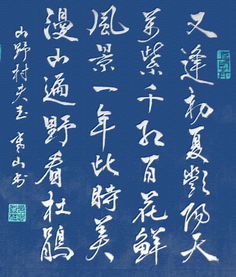 又逢初夏艷陽天
萬紫千紅百花鮮
風景一年此時美
漫山遍野看杜鵑
山野村夫玉書山书